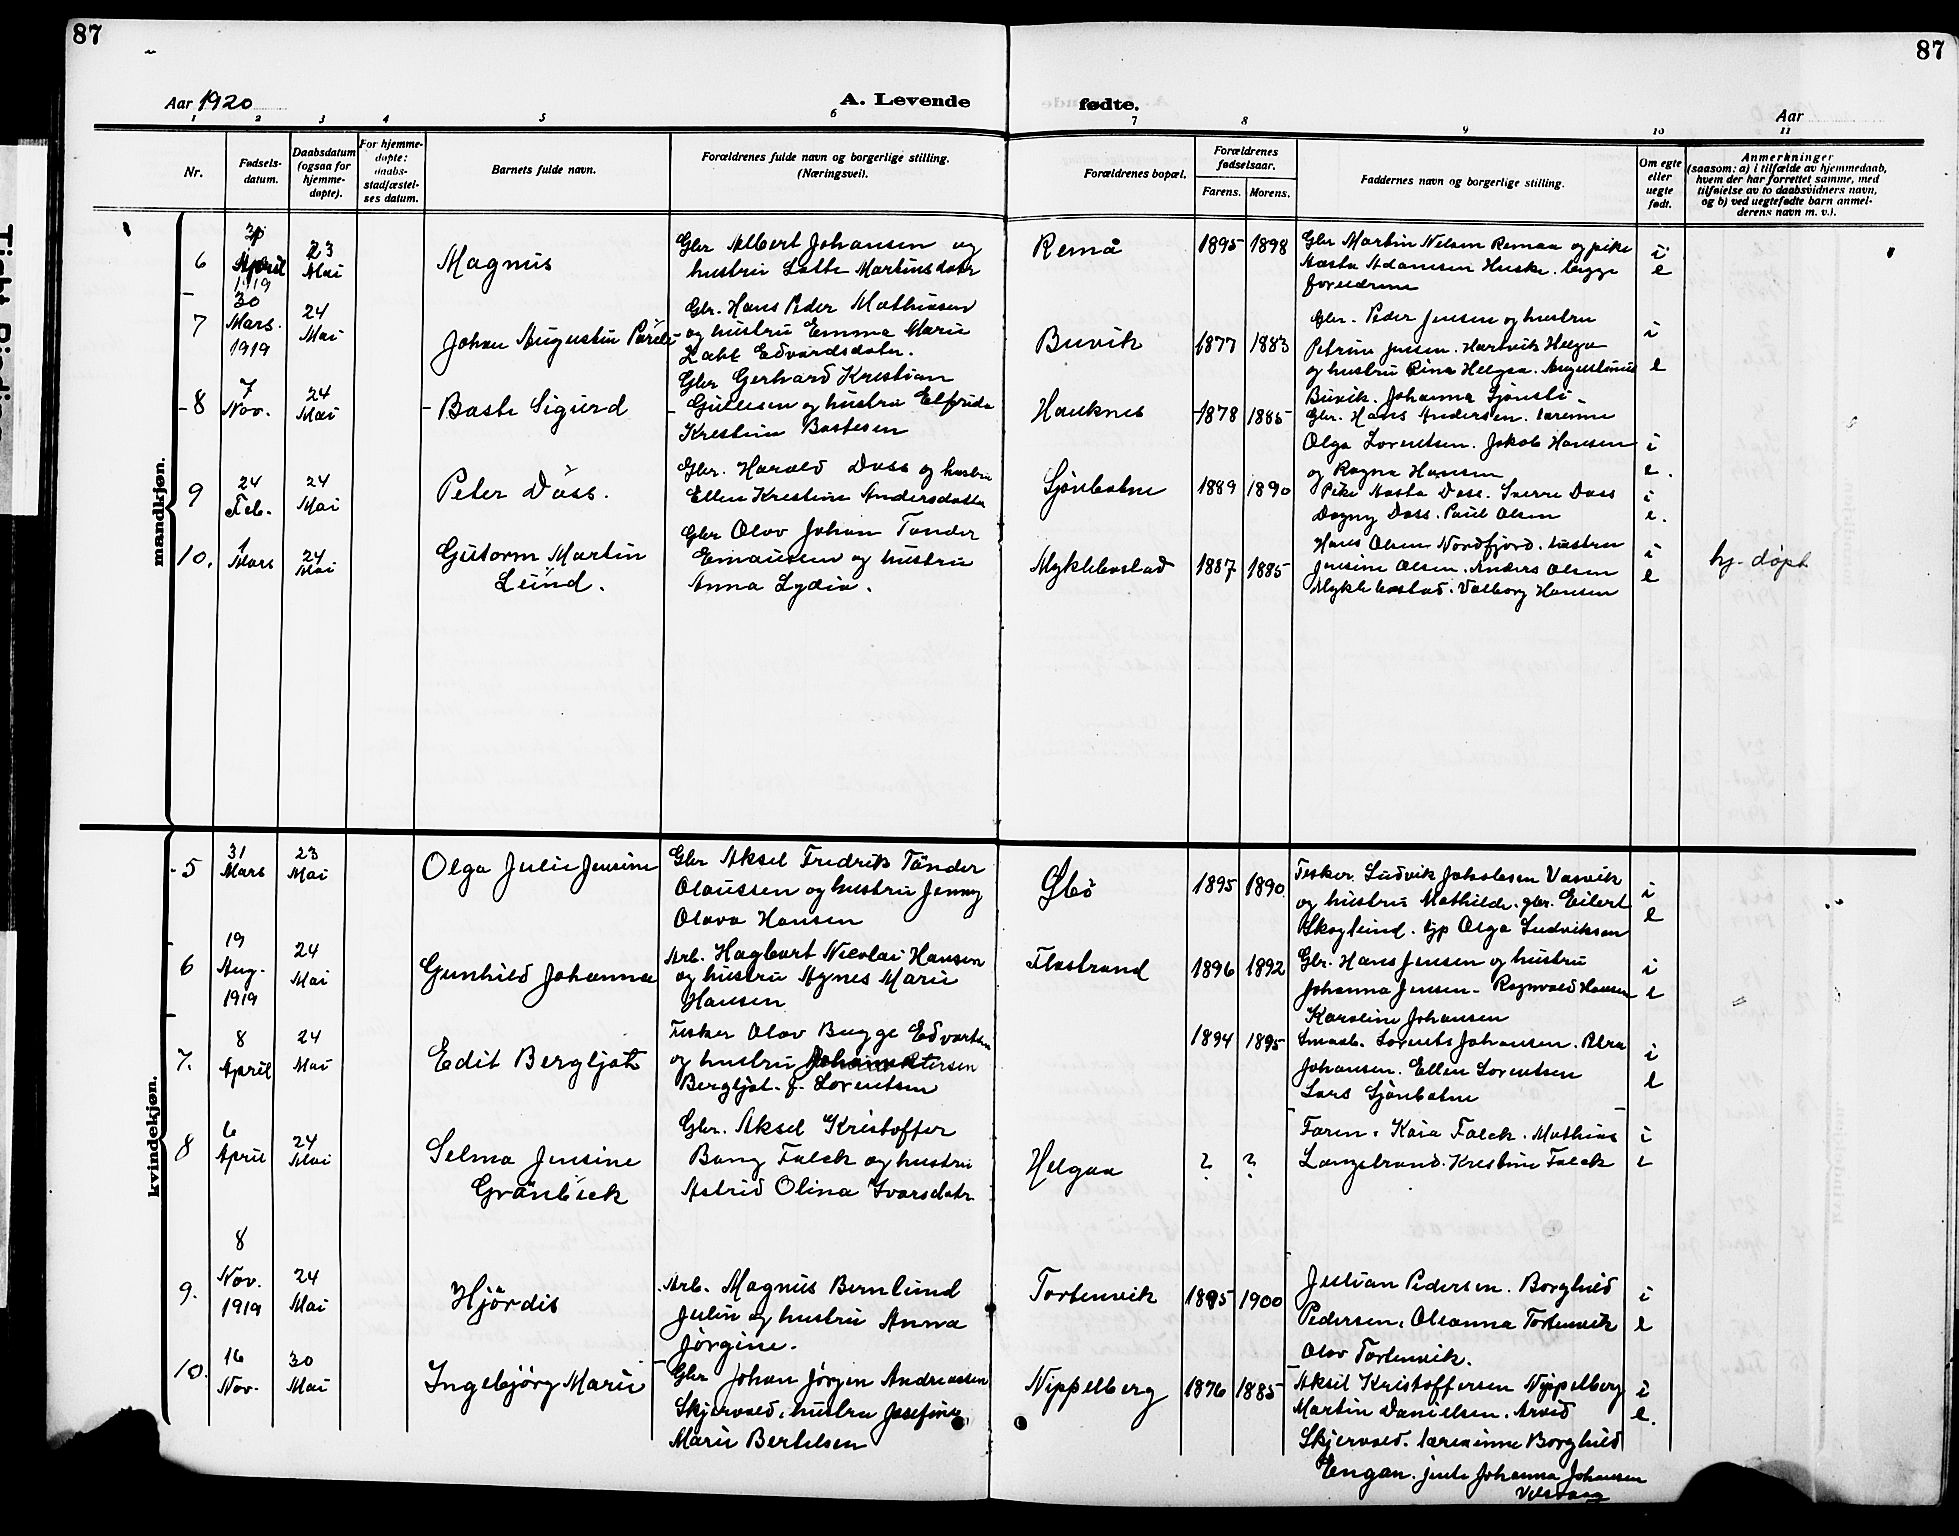 87
87
Aar 1920
A. Levende
fødte.
Aar
1 2 3 4 5 6 7 8 9 10 11
Nr.
Fødsels-
datum.
Daabsdatum
(ogsaa for
hjemme-
døpte).
For hjemme-
døpte:
daabs-
stadfæstel-
ses datum.
Barnets fulde navn.
Forældrenes fulde navn og borgerlige stilling.
(Næringsvei).
Forældrenes bopæl.
Forældrenes
fødselsaar.
Farens. Morens.
Faddernes navn og borgerlige stilling.
Om egte
eller
uegte
født.
Anmerkninger
(saasom: a) i tilfælde av hjemmedaab,
hvem der har forrettet samme, med
tilføielse av to daabsvidners navn,
og b) ved uegtefødte barn anmel-
derens navn m. v.).
mandkjøn.
6
April
1919
23
Mai
Magnus
Gbr Albert Johansen og
hustru Lotte Martinsdatr
Remå
1895 1898
Gbr Martin Nelsen Remaa og pike
Aasta Adamsen Huske. begge
forældrene
i
e
7
30
Mars.
1919
24
Mai
Johan Augustin Pareli
Gbr. Hans Peder Mathiasen
og hustru Emma Marie
Edvardsdatr.
Buvik
1877 1883
Gbr. Peder Jensen og hustru
Petrine Jensen. Hartvik Helga
og hustru Rina Helgaa. Augustinus
Buvik. Johanna Sjønsli -
i
e
8
7
Nov.
24
Mai
Baste Sigurd
Gbr Gerhard Kristian
Gullesen og hustru Elfrida
Kristine Bastesen
Hauknes
1878 1885
Gbr. Hans Andersen. lærerinne
Olga Lorentsen. Jakob Hansen
og Ragna Hansen
i
e.
9
24
Feb.
24
Mai
Peter Dass.
Gbr. Harald Dass og hustru
Ellen Kristine Andersdatter
Sjönbotne
1889 1890
Pike Aasta Dass. Sverre Dass
Dagny Dass. Paul Olsen
i
e.
10.
1
Mars
24
Mai
Gutorm Martin
Lund.
Gbr Olav Johan Tander
Emausen og hustru
Anna Lydia.
Myklebostad
1887 1885
Hans Olsen Nordfjord. hustru
Jensine Olsen. Anders Olsen
Myklebostad. Valborg Hansen
i
e
hj. døpt
kvindekjøn.
5
31
Mars
23
Mai
Olga Julie Jensine
Gbr Aksel Fredrik Tänder
Olaussen og hustru Jenny
Olava Hansen
1895 1890
Fisker. Ludvik Jakobsen Vasvik
og hustru Mathilde. gbr. Eilert
Skoglund. Olga Ludviksen
i
e
6
19
Aug.
1919
24
Mai
Gunhild Johanna
Arb. Hagbart Nicolai Hansen
og hustru Agnes Marie
Hansen
Flostrand
1896 1892
Gbr. Hans Jensen og hustru
Johanna Jensen - Ragnvald Hansen
Karoline Johansen
i
e
7.
8
April
24
Mai
Edit Bergljot
Fisker Olav Bugge Edvartsen
og hustru
Bergljot. f. Lorentsen
1894 1895
Smaab. Lorents Johansen. Petra
Johansen. Ellen Lorentsen
Lars Sjönbotne
i
e
8
6
April
24
Mai
Selma Jensine
Grönbeck
Gbr. Aksel Kristoffer
Bang Falck og hustru
Astrid Olina Ivarsdatr
Helgaa
? ?
Faren. Kaia Falck. Mathias
Langstrand. Kristine Falck
i
e
9.
8
Nov.
1919
24
Mai
Hjördis
Arb. Magnus Bernlund
Julin og hustru Anna
Jörgine.
Tortenvik
1895 1900
Justian Pedersen. Borghild
Pedersen. Oleanna Tortenvik
Olav Tortenvik.
i
e
10.
16
Nov.
30
Mai
Ingebjörg Marie
Gbr Johan Jörgen Andreassen
Skjervold. hustru Josefine
Marie Bertelsen
Nippelberg
1876 1885
Aksel Kristoffersen Nippelberg
Martin Danielsen. Arvid
Skjervold. lærerinne Borghild
Engan. jente Johanna Johansen
i
e.